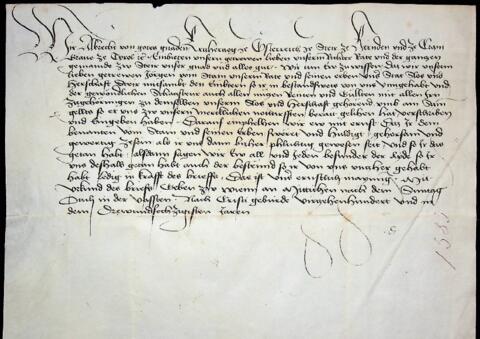 Wir Albrecht von gotes gnaden Ertzhertzog ze Osterreich ze Steir ze Kernden und ze Crain
Grave ze Tyrol etc. Embieten unsern getrewen lieben unserm Richter Rate und der gantzen
gemainde zu Steir unser gnad und alles gut. Wir tun ew zu wissen daz wir unserm
lieben getrewen Jörgen vom Stain unserm Rate und seinen erben Unser Stat Slos und
Herschafft Steir mitsambt den in
und der gewondlichen Statsteur auch allen nutzen Renten und Gulten mit allen irn
Zugehorungen zu demselben unserm Slos und Herschafft gehorend umb ain Sum
gelts so er uns zu unsern merklichen notdurfften berait gelihen hat verschriben
und eingeben haben. Davon emphelhen wir ew mit ernst daz ir dem
benanten vom Stain und seinen erben sweret und huldigt gehorsam und
gewertig sein als ir uns dann bisher phlichtig gewesen seit Und so ir das
getan habt alsdann sagen wir ew all und yeden besunder der ayde so ir
uns deshalb getan habt auch der so ir von uns vorher gehabt
habt ledig in krafft des briefs. Daz ist unser ernstlich maynung. Mit
urkund des briefs. Geben zu Wienn an Mittichen nach dem Sunntag
in der Vassten. Nach Cristi geburde Viertzehenhundert und in
dem Drewundsechtzigisten Jaren